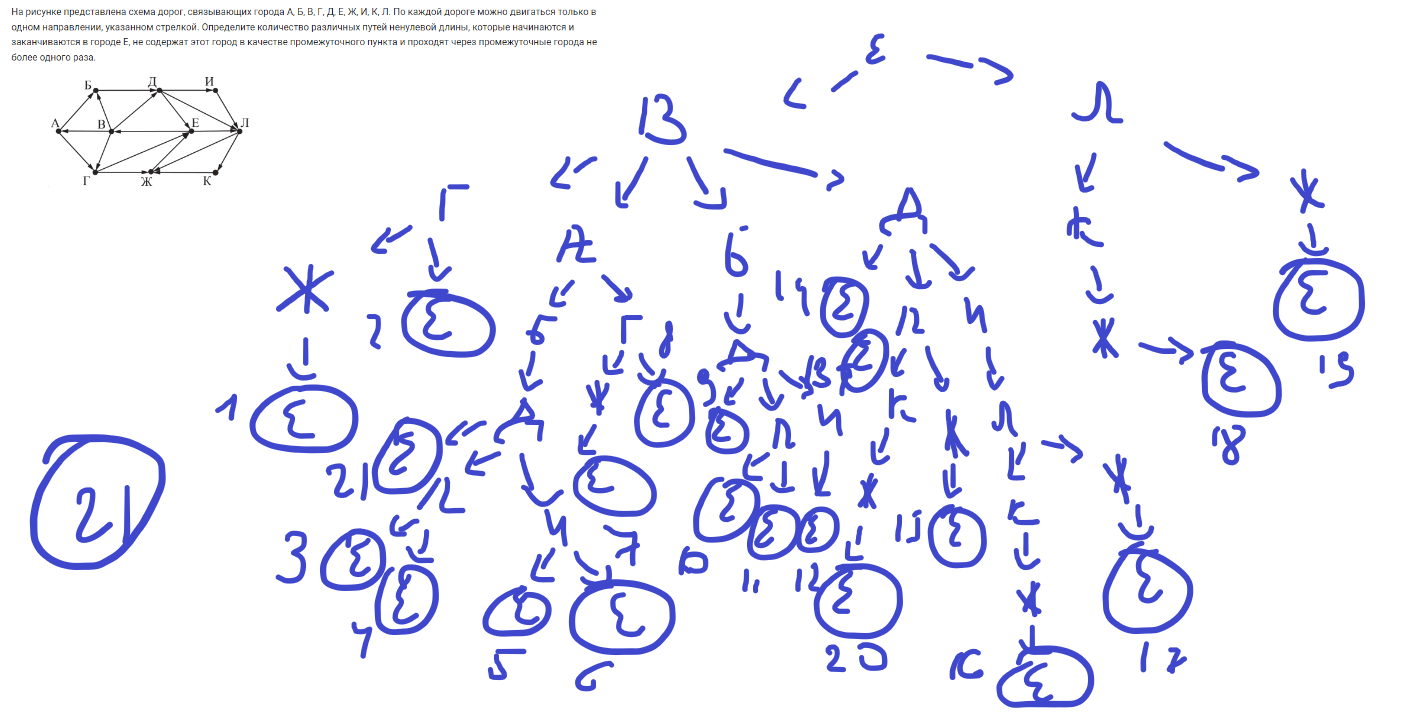 На рисунке представлена схема дорог, связывающих города А, Б, В, Г, Д, Е, Ж, И, К, Л. По каждой дороге можно двигаться только в
одном направлении, указанном стрелкой. Определите количество различных путей ненулевой длины, которые начинаются и
заканчиваются в городе Е, не содержат этот город в качестве промежуточного пункта и проходят через промежуточные города не
более одного раза.
Б Д И
А В Е Л
Г Ж К
Е
В Л
Г А Б Д К Ж
Ж Е Б Г Д Е Л И Ж Е
1 2 8 14 13 18 19
Д Ж Е Е Л И Е К Ж Л
21 Е Л И Е 9 Ж Е К Ж
3 Е Е 7 Е Е Е 15 Е
4 Е Е 10 11 12 Е Ж Е
5 6 20 16 Е 17
21